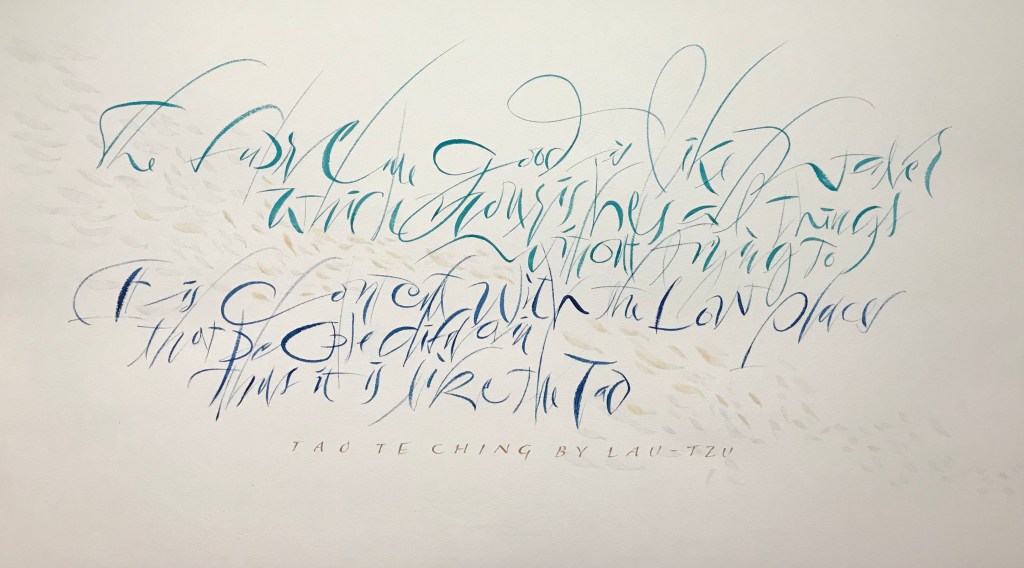 The Supreme Good is like Water
which nourishes all Things
without trying to
It is Content With the Low places
that People disdain
Thus it is like the Tao
TAO TE CHING BY LAU-TZU